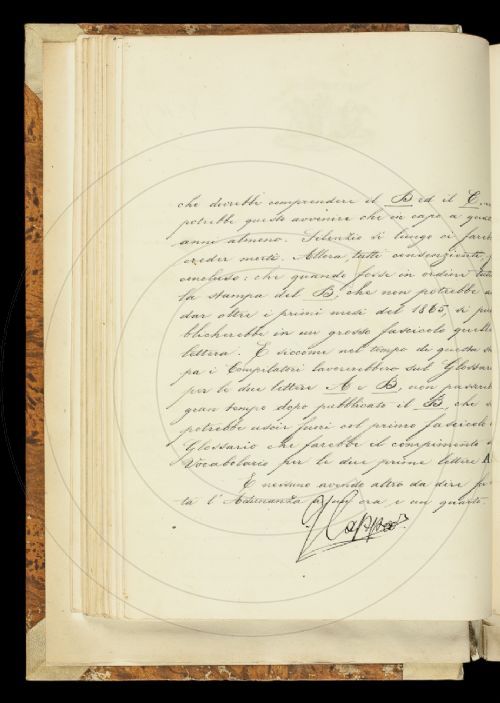 che dovrebbe comprendere il B ed il C
potrebbe questo avvenire che in capo a
anni almeno. Silenzio sì lungo ci
creder morti. Allora, tutti consenzienti,
concluso: che quando fosse in ordine
la stampa del B, che non potrebbe
dar oltre i primi mesi del 1865, si pub
blicherebbe in un grosso fascicolo quella
lettera. E siccome nel tempo di questa
pa i Compilatori lavorerebbero sul Glossario
per le due lettere A e B, non
gran tempo dopo pubblicato il B, che
potrebbe uscir fuori col primo fascicolo
Glossario che farebbe il compimento
Vocabolario per le due prime lettere A
E nessuno avendo altro da dire
ta l'Adunanza ora e un quarto.